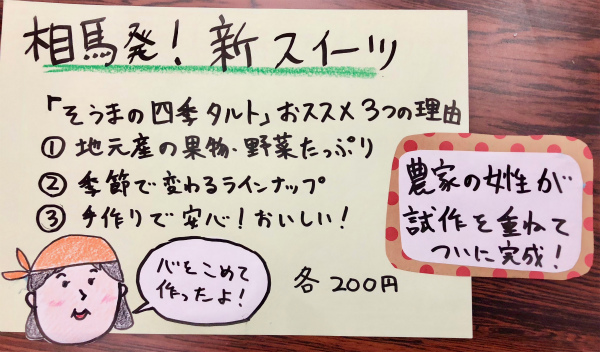 相馬発！新スイーツ
「そうまの四季タルト」おススメ3つの理由
① 地元産の果物・野菜たっぷり
② 季節で変わるラインナップ
③ 手作りで安心！おいしい！
農家の女性が
試作を重ねて
ついに完成！
心をこめて
作ったよ！
各200円